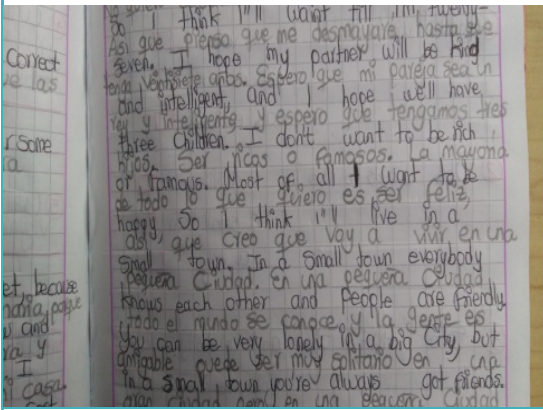 Correct
ue las
r some
ra
et, because
u and
ra y
I
casa
So I think I'll want till I'm twenty-
Asi que pienso que me desmayare, hasta que
seven. I hope my partner will be kind
tenga veintisiete años. Espero que mi pareja sea un
and intelligent, and I hope we'll have,
rey y inteligente y espero que tengamos tres
three children. I don't want to be rich
hijos. Ser ricas o famosos. La mayoria
or famous. Most of all I want to be
de todo lo que quiero es ser feliz,
happy So I think I'll live in a
asi, que creo que voy a vivir en una
small town. In a small town everybody
pequeña Ciudad. en una pequeña Ciudad
knows each other and people are friendly
todo el mundo se conoce, y la gente es
you can be very lonely in a big City, but
amigable puede ser muy solitario en una
in a small town you're always got friends.
gran ciudad pero en una pequeña Ciudad